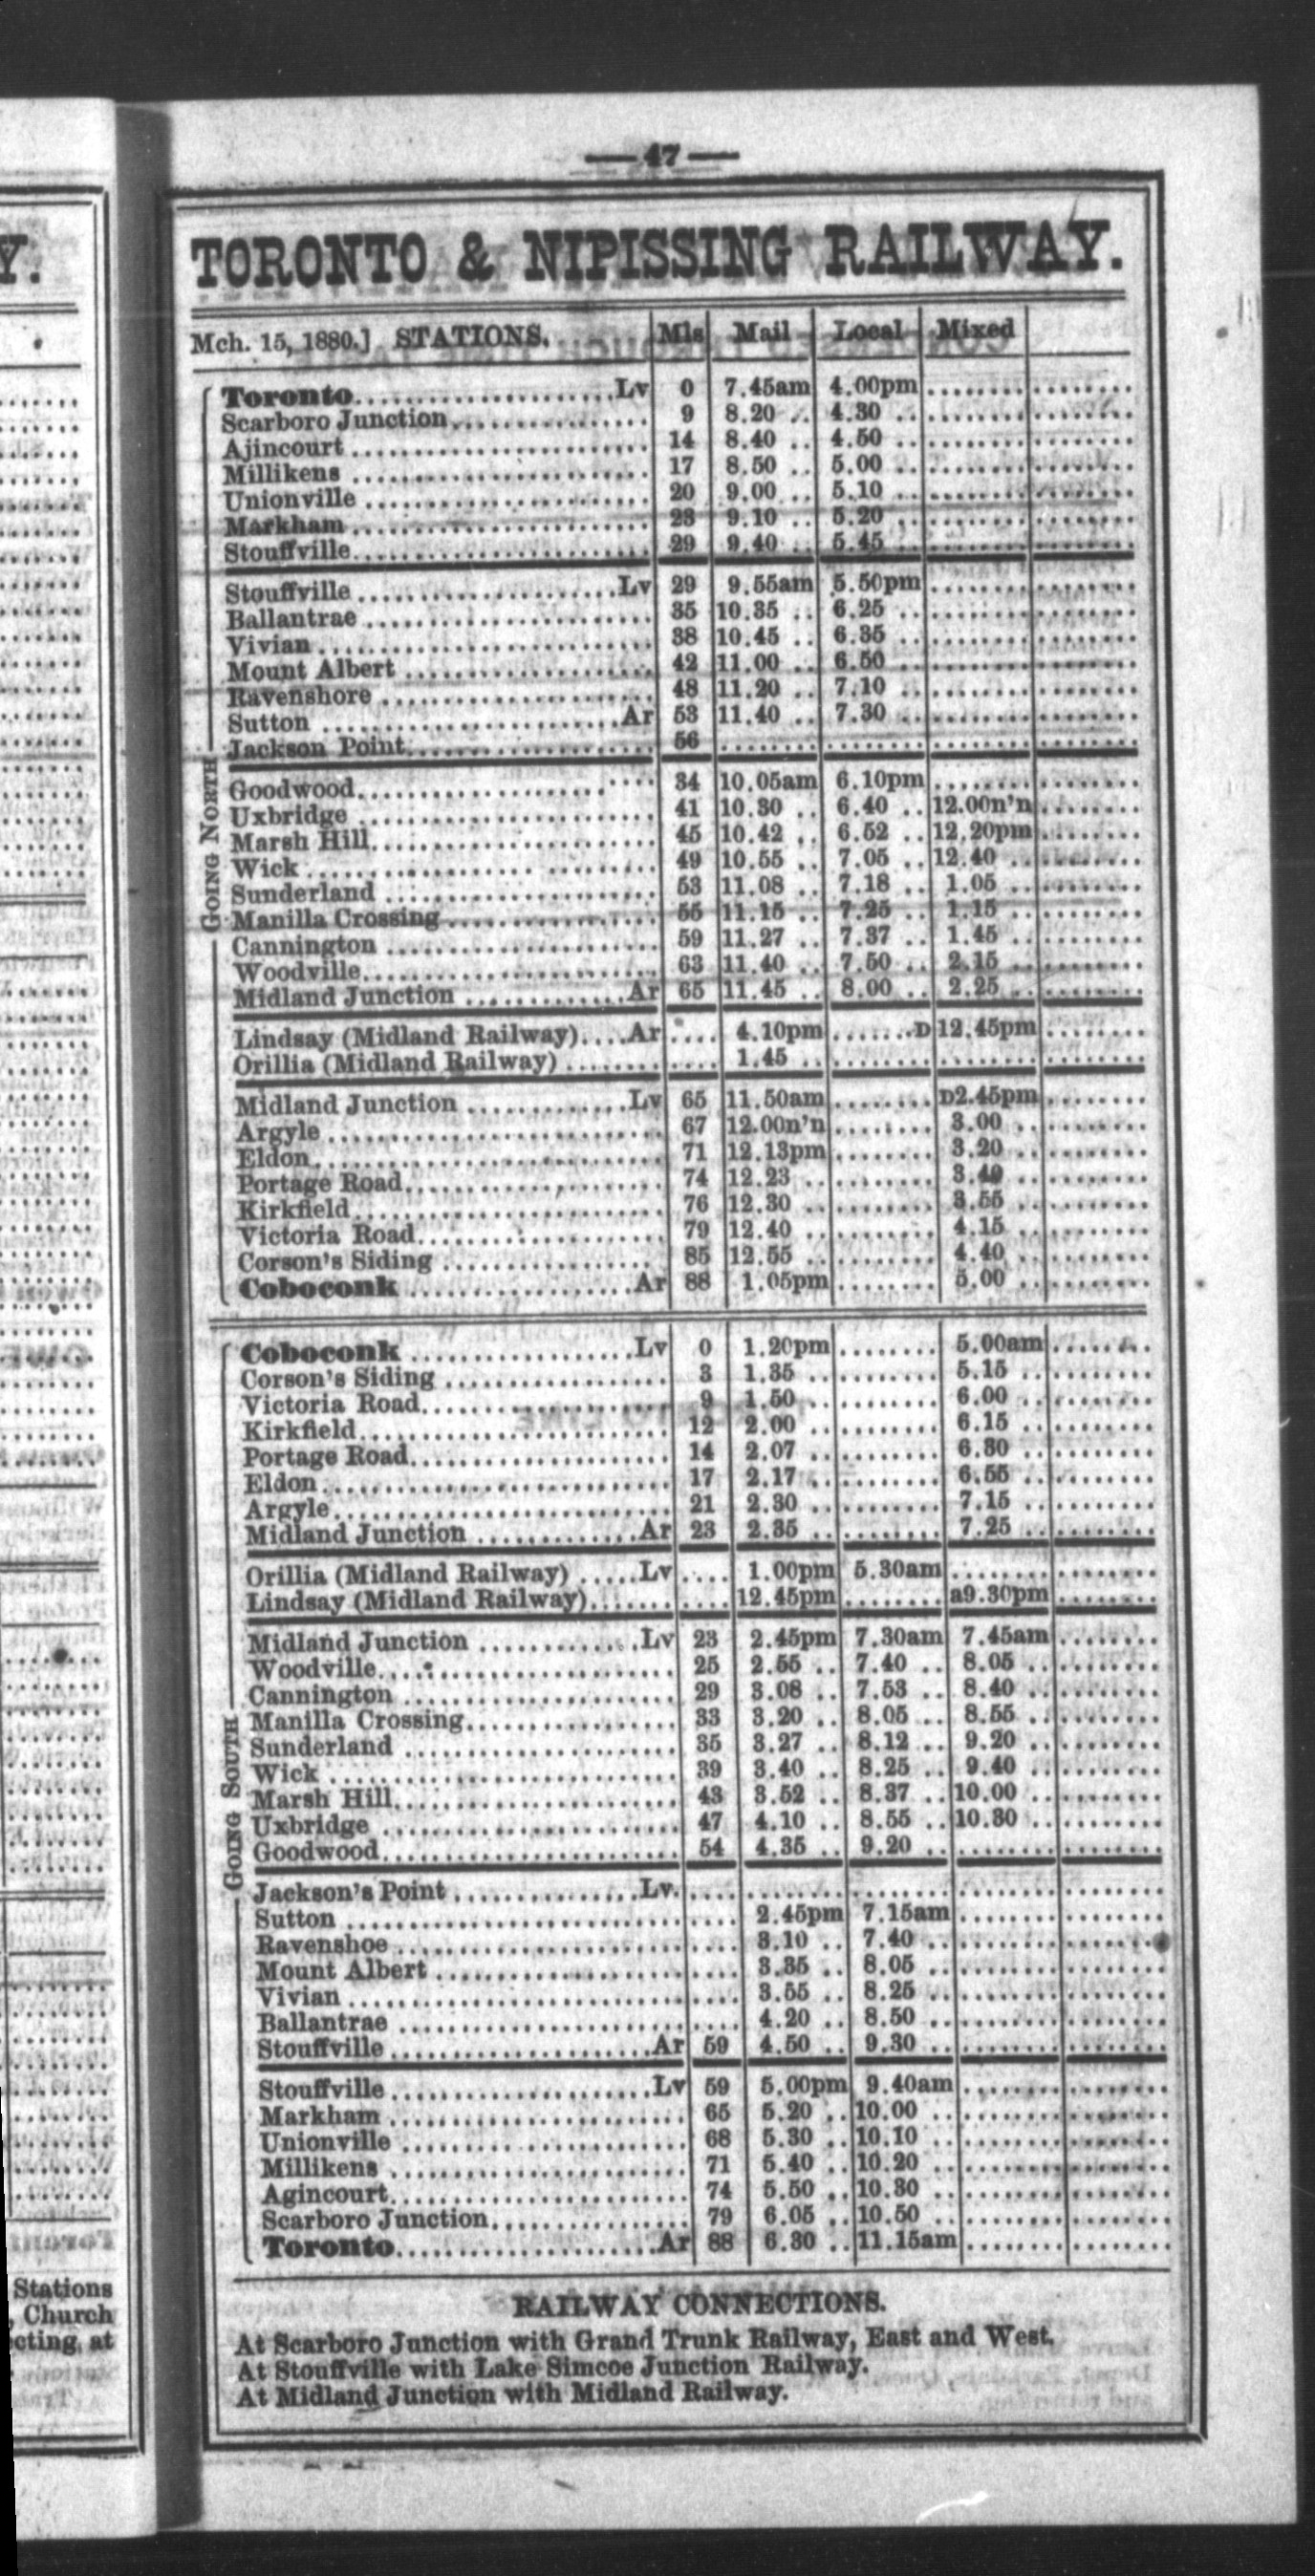 — 47 —
TORONTO & NIPISSING RAILWAY.
Mch. 15, 1880.] STATIONS. Mls Mail Local Mixed
Toronto Lv 0 7.45am 4.00pm
Scarboro Junction 9 8.20 .. 4.30 ..
Ajincourt 14 8.40 .. 4.50 ..
Millikens 17 8.50 .. 5.00 ..
Unionville 20 9.00 .. 5.10 ..
Markham 23 9.10 .. 5.20 ..
Stouffville 29 9.40 .. 5.45 ..
Stouffville Lv 29 9.55am 5.50pm
Ballantrae 35 10.35 .. 6.25 ..
Vivian 38 10.45 .. 6.35 ..
Mount Albert 42 11.00 .. 6.50 ..
Ravenshore 48 11.20 .. 7.10 ..
Sutton Ar 53 11.40 .. 7.30 ..
Jackson Point 56
GOING NORTH
Goodwood 34 10.05am 6.10pm
Uxbridge 41 10.30 .. 6.40 .. 12.00n'n
Marsh Hill 45 10.42 .. 6.52 .. 12.20pm
Wick 49 10.55 .. 7.05 .. 12.40 ..
Sunderland 53 11.08 .. 7.18 .. 1.05 ..
Manilla Crossing 55 11.15 .. 7.25 .. 1.15 ..
Cannington 59 11.27 .. 7.37 .. 1.45 ..
Woodville 63 11.40 .. 7.50 .. 2.15 ..
Midland Junction Ar 65 11.45 .. 8.00 .. 2.25 ..
Lindsay (Midland Railway) Ar 4.10pm D 12.45pm
Orillia (Midland Railway) 1.45 ..
Midland Junction Lv 65 11.50am D2.45pm
Argyle 67 12.00n'n 3.00 ..
Eldon 71 12.13pm 3.20 ..
Portage Road 74 12.23 .. 3.40 ..
Kirkfield 76 12.30 .. 3.55 ..
Victoria Road 79 12.40 .. 4.15 ..
Corson's Siding 85 12.55 .. 4.40 ..
Coboconk Ar 88 1.05pm 5.00 ..
Coboconk Lv 0 1.20pm 5.00am
Corson's Siding 3 1.35 .. 5.15 ..
Victoria Road 9 1.50 .. 6.00 ..
Kirkfield 12 2.00 .. 6.15 ..
Portage Road 14 2.07 .. 6.30 ..
Eldon 17 2.17 .. 6.55 ..
Argyle 21 2.30 .. 7.15 ..
Midland Junction Ar 23 2.35 .. 7.25 ..
Orillia (Midland Railway) Lv 1.00pm 5.30am
Lindsay (Midland Railway) 12.45pm a9.30pm
Midland Junction Lv 23 2.45pm 7.30am 7.45am
Woodville 25 2.55 .. 7.40 .. 8.05 ..
Cannington 29 3.08 .. 7.53 .. 8.40 ..
Manilla Crossing 33 3.20 .. 8.05 .. 8.55 ..
Sunderland 35 3.27 .. 8.12 .. 9.20 ..
Wick 39 3.40 .. 8.25 .. 9.40 ..
Marsh Hill 43 3.52 .. 8.37 .. 10.00 ..
Uxbridge 47 4.10 .. 8.55 .. 10.30 ..
Goodwood 54 4.35 .. 9.20 ..
GOING SOUTH
Jackson's Point Lv.
Sutton 2.45pm 7.15am
Ravenshoe 3.10 .. 7.40 ..
Mount Albert 3.35 .. 8.05 ..
Vivian 3.55 .. 8.25 ..
Ballantrae 4.20 .. 8.50 ..
Stouffville Ar 59 4.50 .. 9.30 ..
Stouffville Lv 59 5.00pm 9.40am
Markham 65 5.20 .. 10.00 ..
Unionville 68 5.30 .. 10.10 ..
Millikens 71 5.40 .. 10.20 ..
Agincourt 74 5.50 .. 10.30 ..
Scarboro Junction 79 6.05 .. 10.50 ..
Toronto Ar 88 6.30 .. 11.15am
RAILWAY CONNECTIONS.
At Scarboro Junction with Grand Trunk Railway, East and West.
At Stouffville with Lake Simcoe Junction Railway.
At Midland Junction with Midland Railway.
Y.
Stations
, Church
cting, at